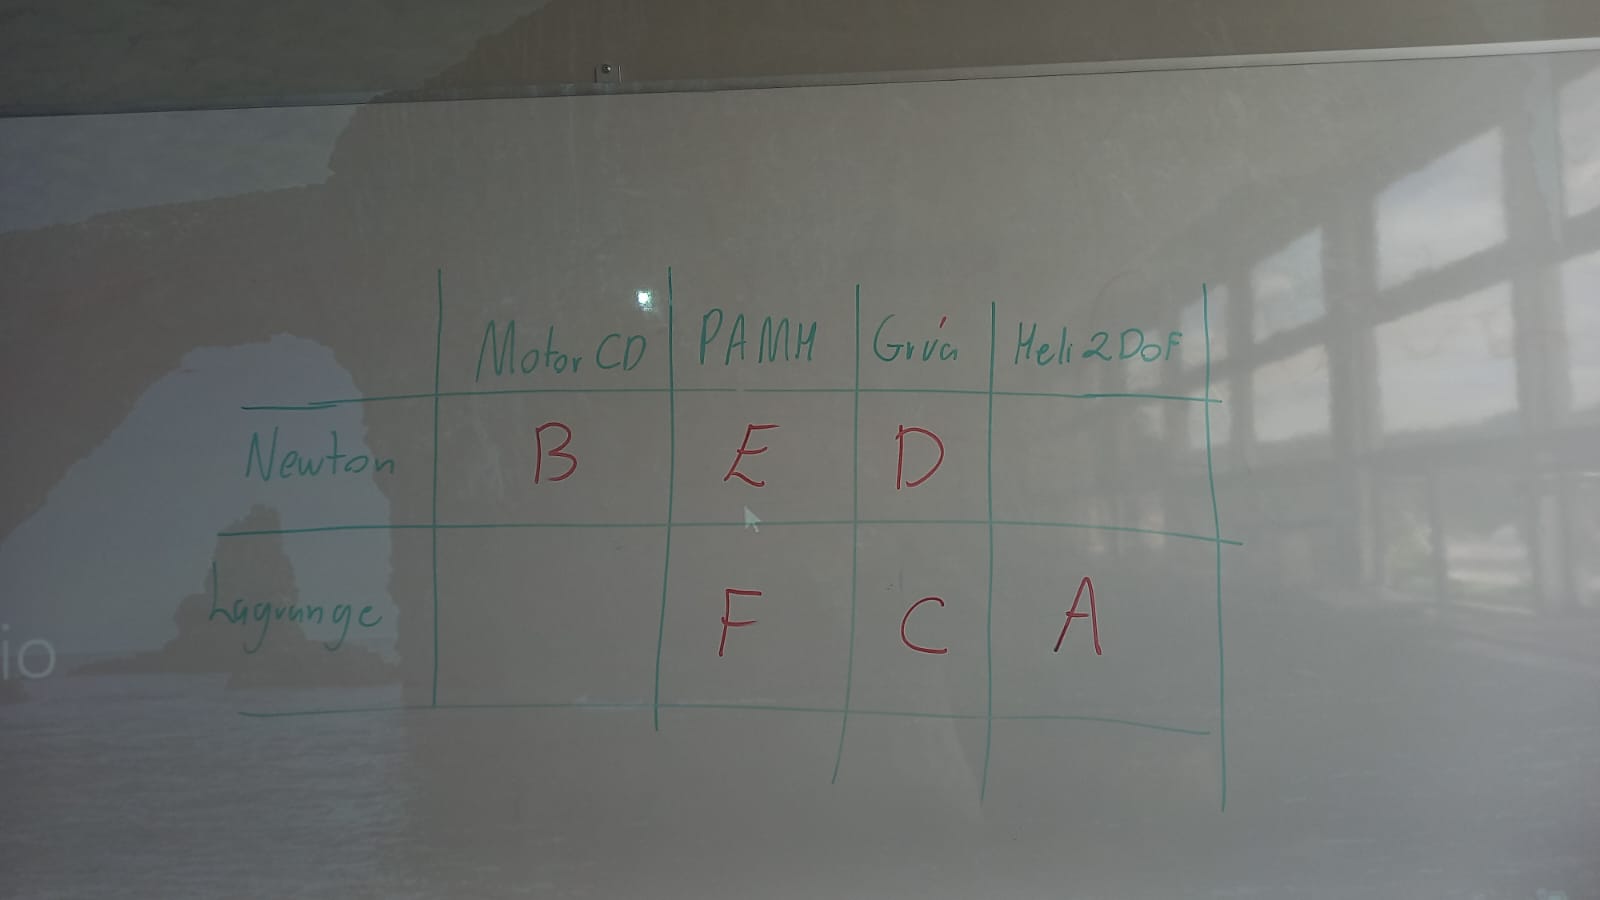 Motor CD PAMH Grúa Heli 2 DoF
Newton B E D
Lagrange F C A
io